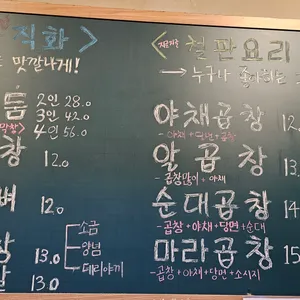 직화 >
맛깔나게!
둠 2인 28.0
3인 42.0
막창) 4인 56.0
창 12.0
벼 12.0
창 13.0
소금
양념
데리야끼
알 13.0
< 철판요리
→ 누구나 좋아하는
야채곱창 12.
- 야채+당면+곱창
알곱창 14.
- 곱창많이 + 야채
순대곱창 14
- 곱창+야채+당면+순대
마라곱창 15
- 곱창+야채+당면+소시지